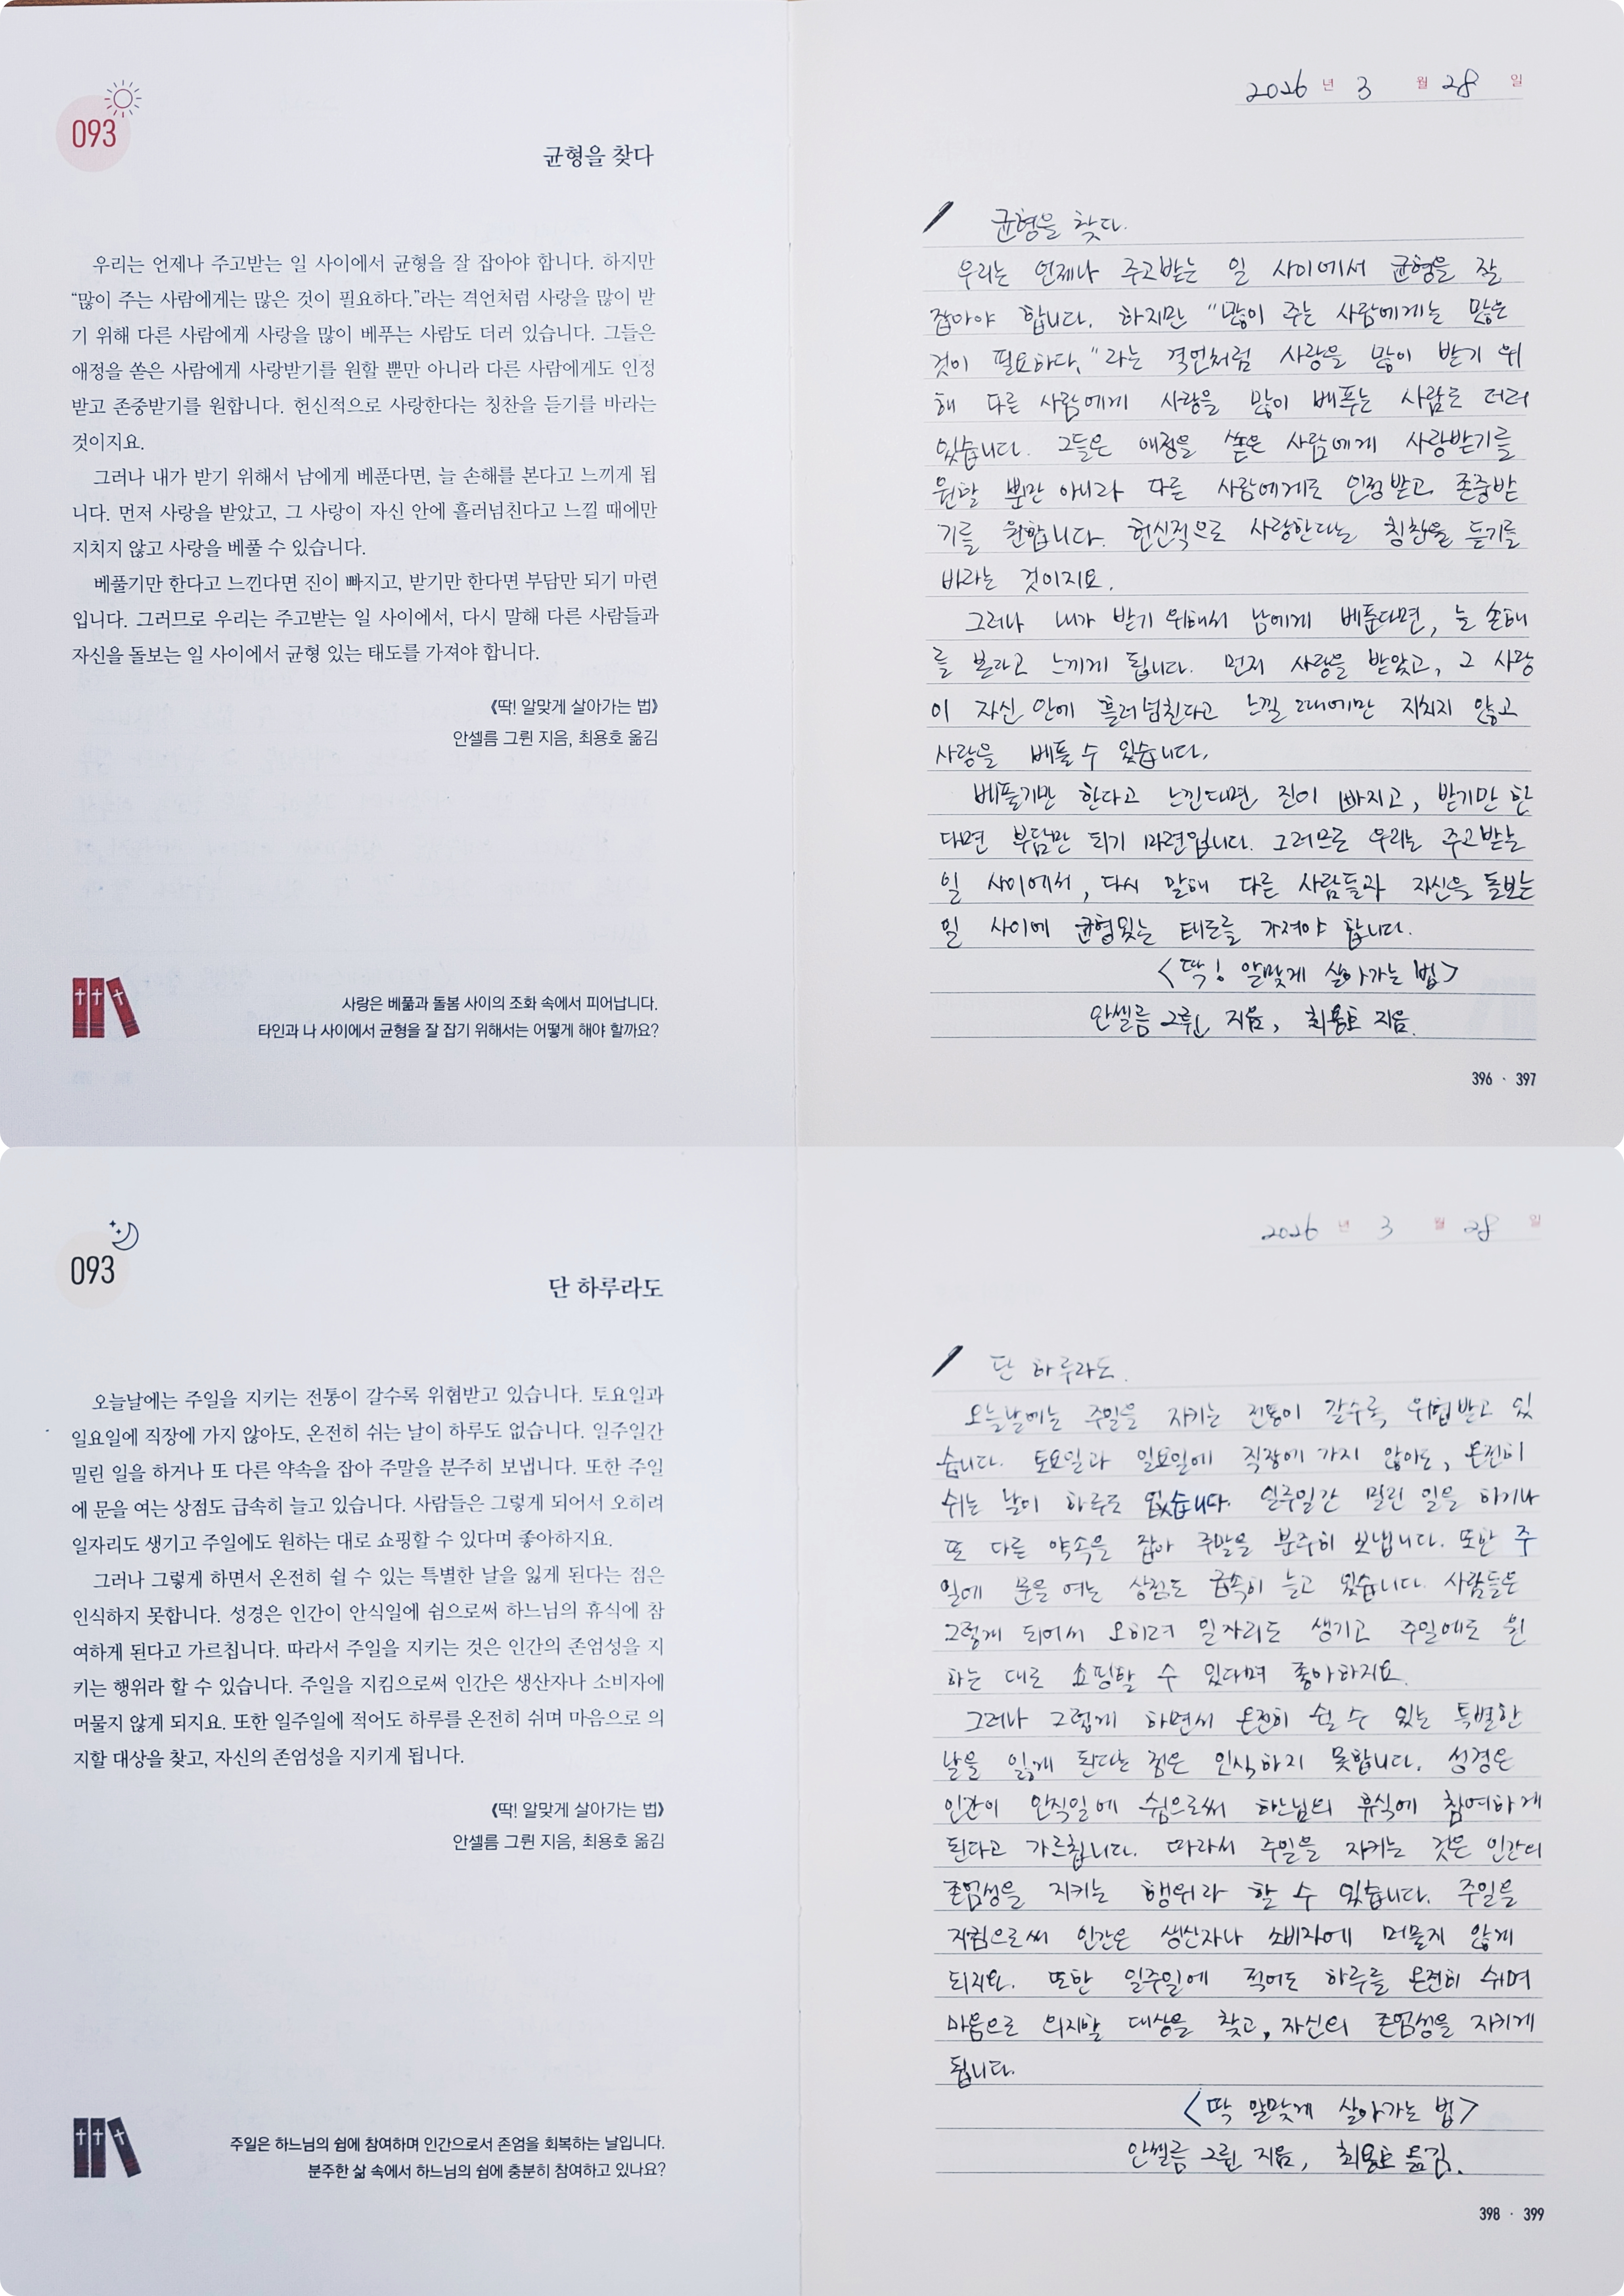 093
균형을 찾다
우리는 언제나 주고받는 일 사이에서 균형을 잘 잡아야 합니다. 하지만
“많이 주는 사람에게는 많은 것이 필요하다.”라는 격언처럼 사랑을 많이 받
기 위해 다른 사람에게 사랑을 많이 베푸는 사람도 더러 있습니다. 그들은
애정을 쏟은 사람에게 사랑받기를 원할 뿐만 아니라 다른 사람에게도 인정
받고 존중받기를 원합니다. 헌신적으로 사랑한다는 칭찬을 듣기를 바라는
것이지요.
그러나 내가 받기 위해서 남에게 베푼다면, 늘 손해를 본다고 느끼게 됩
니다. 먼저 사랑을 받았고, 그 사랑이 자신 안에 흘러넘친다고 느낄 때에만
지치지 않고 사랑을 베풀 수 있습니다.
베풀기만 한다고 느낀다면 진이 빠지고, 받기만 한다면 부담만 되기 마련
입니다. 그러므로 우리는 주고받는 일 사이에서, 다시 말해 다른 사람들과
자신을 돌보는 일 사이에서 균형 있는 태도를 가져야 합니다.
《딱! 알맞게 살아가는 법》
안셀름 그륀 지음, 최용호 옮김
사랑은 베풂과 돌봄 사이의 조화 속에서 피어납니다.
타인과 나 사이에서 균형을 잘 잡기 위해서는 어떻게 해야 할까요?
2026 년 3 월 28 일
균형을 찾다.
우리는 언제나 주고받는 일 사이에서 균형을 잘
잡아야 합니다. 하지만 “많이 주는 사람에게는 많은
것이 필요하다.”라는 격언처럼 사랑을 많이 받기 위
해 다른 사람에게 사랑을 많이 베푸는 사람도 더러
있습니다. 그들은 애정을 쏟은 사람에게 사랑받기를
원할 뿐만 아니라 다른 사람에게도 인정받고 존중받
기를 원합니다. 헌신적으로 사랑한다는 칭찬을 듣기를
바라는 것이지요.
그러나 내가 받기 위해서 남에게 베푼다면, 늘 손해
를 본다고 느끼게 됩니다. 먼저 사랑을 받았고, 그 사랑
이 자신 안에 흘러넘친다고 느낄 때에만 지치지 않고
사랑을 베풀 수 있습니다.
베풀기만 한다고 느낀다면 진이 빠지고, 받기만 한
다면 부담만 되기 마련입니다. 그러므로 우리는 주고받는
일 사이에서, 다시 말해 다른 사람들과 자신을 돌보는
일 사이에 균형있는 태도를 가져야 합니다.
<딱! 알맞게 살아가는 법>
안셀름 그륀 지음, 최용호 지음.
396 · 397
093
단 하루라도
오늘날에는 주일을 지키는 전통이 갈수록 위협받고 있습니다. 토요일과
일요일에 직장에 가지 않아도, 온전히 쉬는 날이 하루도 없습니다. 일주일간
밀린 일을 하거나 또 다른 약속을 잡아 주말을 분주히 보냅니다. 또한 주일
에 문을 여는 상점도 급속히 늘고 있습니다. 사람들은 그렇게 되어서 오히려
일자리도 생기고 주일에도 원하는 대로 쇼핑할 수 있다며 좋아하지요.
그러나 그렇게 하면서 온전히 쉴 수 있는 특별한 날을 잃게 된다는 점은
인식하지 못합니다. 성경은 인간이 안식일에 쉼으로써 하느님의 휴식에 참
여하게 된다고 가르칩니다. 따라서 주일을 지키는 것은 인간의 존엄성을 지
키는 행위라 할 수 있습니다. 주일을 지킴으로써 인간은 생산자나 소비자에
머물지 않게 되지요. 또한 일주일에 적어도 하루를 온전히 쉬며 마음으로 의
지할 대상을 찾고, 자신의 존엄성을 지키게 됩니다.
《딱! 알맞게 살아가는 법》
안셀름 그륀 지음, 최용호 옮김
주일은 하느님의 쉼에 참여하며 인간으로서 존엄을 회복하는 날입니다.
분주한 삶 속에서 하느님의 쉼에 충분히 참여하고 있나요?
2026 년 3 월 28 일
단 하루라도.
오늘날에는 주일을 지키는 전통이 갈수록 위협받고 있
습니다. 토요일과 일요일에 직장에 가지 않아도, 온전히
쉬는 날이 하루도 없습니다. 일주일간 밀린 일을 하거나
또 다른 약속을 잡아 주말을 분주히 보냅니다. 또한 주
일에 문을 여는 상점도 급속히 늘고 있습니다. 사람들은
그렇게 되어서 오히려 일자리도 생기고 주일에도 원
하는 대로 쇼핑할 수 있다며 좋아하지요.
그러나 그렇게 하면서 온전히 쉴 수 있는 특별한
날을 잃게 된다는 점은 인식하지 못합니다. 성경은
인간이 안식일에 쉼으로써 하느님의 휴식에 참여하게
된다고 가르칩니다. 따라서 주일을 지키는 것은 인간의
존엄성을 지키는 행위라 할 수 있습니다. 주일을
지킴으로써 인간은 생산자나 소비자에 머물지 않게
되지요. 또한 일주일에 적어도 하루를 온전히 쉬며
마음으로 의지할 대상을 찾고, 자신의 존엄성을 지키게
됩니다.
<딱 알맞게 살아가는 법>
안셀름 그륀 지음, 최용호 옮김.
398 · 399